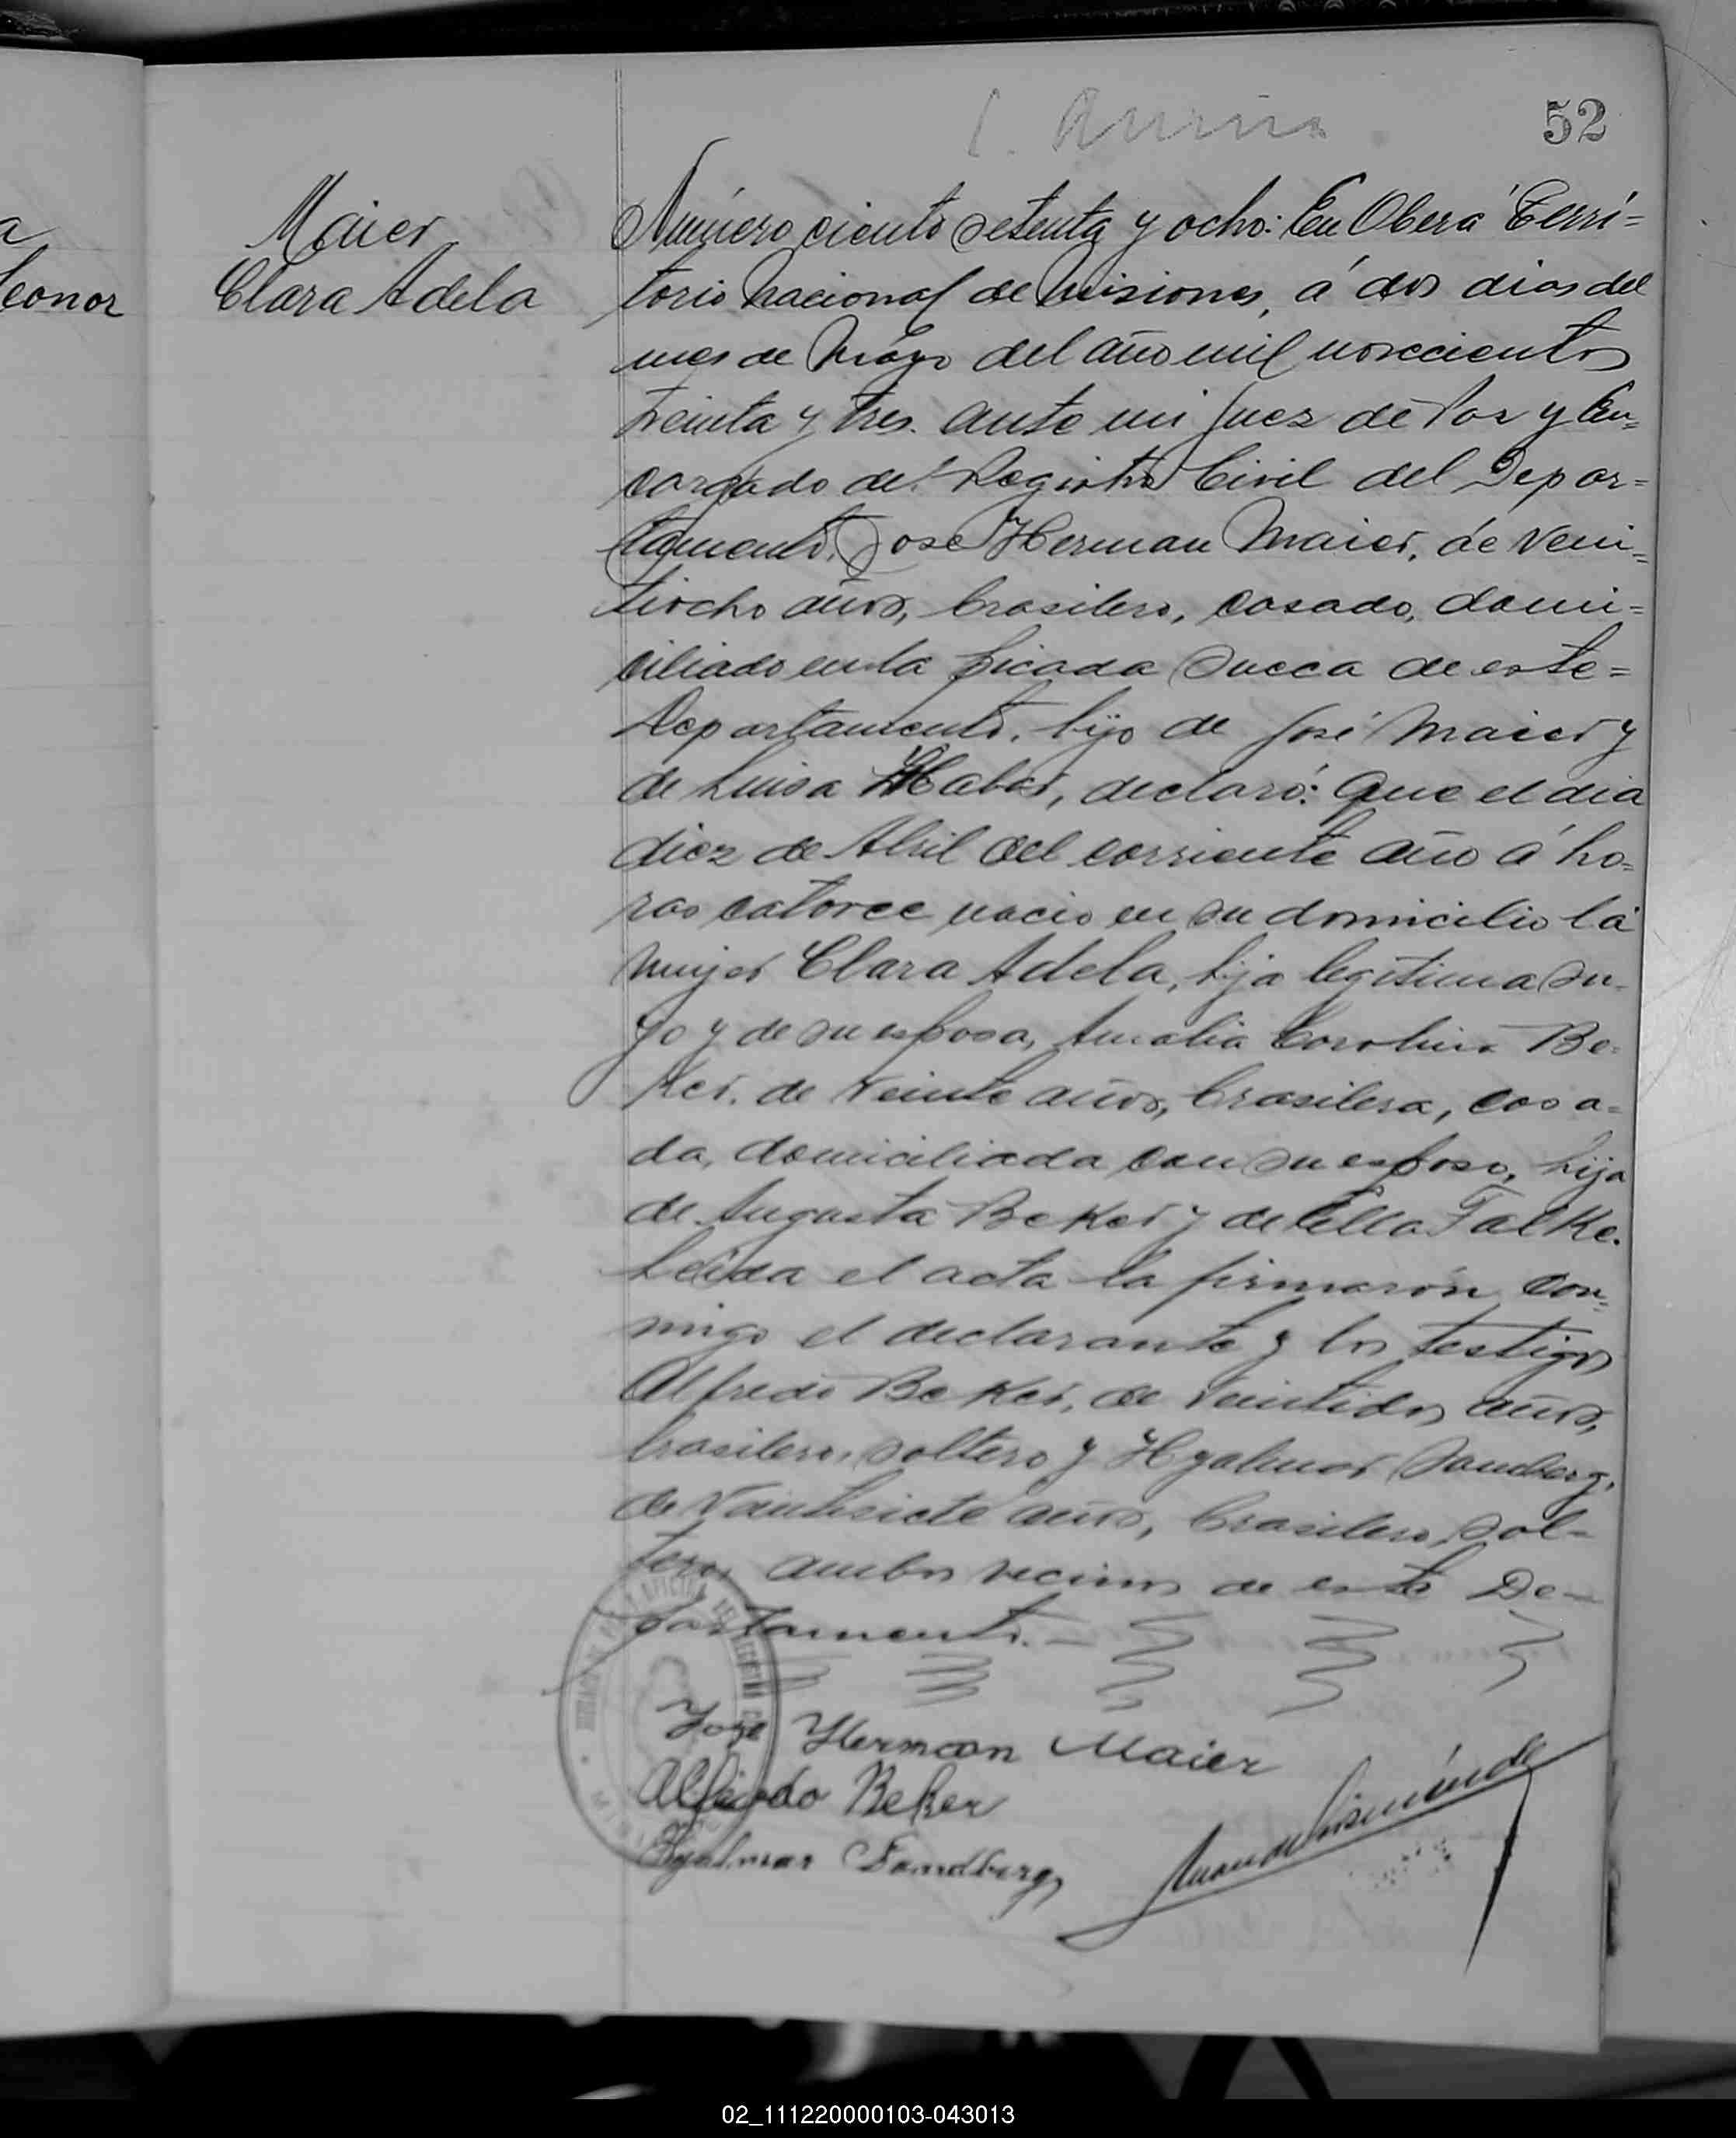 52
a
Leonor
Maier
Clara Adela
Número ciento setenta y ocho: En Oberá Terri=
torio Nacional de Misiones, á dos dias del
mes de Mayo del año mil novecientos
treinta y tres. ante mi Juez de Paz y En=
cargado del Registro Civil del Depar=
tamento, José Herman Maier, de Vein=
tiocho años, brasilero, casado, domi=
ciliado en la picada Sueca de este=
Departamento, hijo de José Maier y
de Luisa Haber, declaró: Que el dia
diez de Abril del corriente año á ho=
ras catorce nacio en su domicilio la
mujer Clara Adela, hija legitima su-
ya y de su esposa, Amalia Carolina Be=
ker, de Veinte años, brasilera, casa=
da, domiciliada con su esposo, hija
de Augusta Beker y de Ella Falke.
Leida el acta la firmarón con=
migo el declarante y los testigos
Alfredo Beker, de Veintidos años,
brasilero, soltero y Hyalmar Sandberg,
de Vaintisiete años, brasilero, sol-
tero, ambos vecinos de este De-
partamento.-
José Herman Maier
Alfredo Beker
Hyalmar Sandberg
02_111220000103-043013